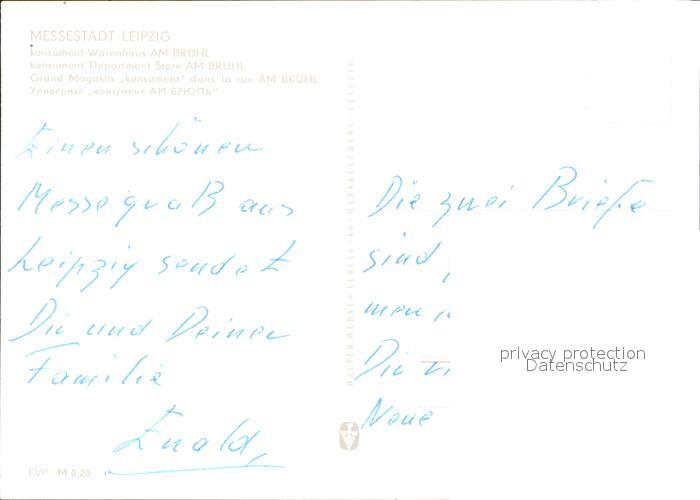 MESSESTADT LEIPZIG
konsument-Warenhaus AM BRÜHL
konsument Department Store AM BRÜHL
Grand Magasin „konsument" dans la rue AM BRÜHL
Универмаг „консумент АМ БРЮЛЬ"
Einen schönen
Messegruß aus
Leipzig sendet
Dir und Deiner
Familie
Ewald,
EVP: M 0,20
Die zwei Briefe
sind,
men
Dir
Neue
privacy protection
Datenschutz